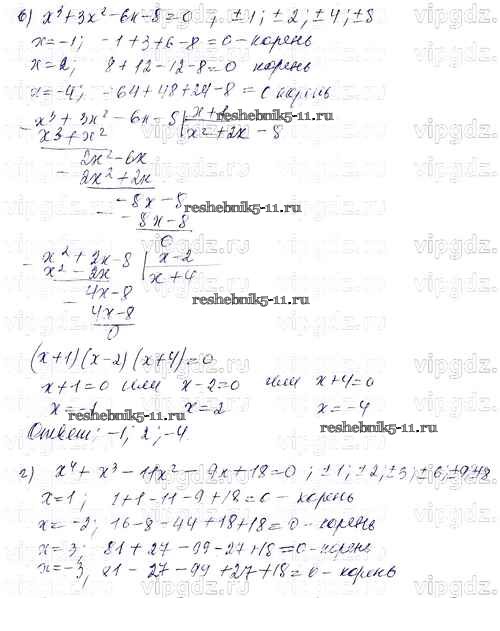 в) x³+3x²-6x-8=0 , ±1; ±2; ±4; ±8
x=-1; -1+3+6-8=0-корень
x=2; 8+12-12-8=0 корень
x=-4; -64+48+24-8=0 корень
x³+3x²-6x-8 | x+1
x³+x² x²+2x-8
2x²-6x
2x²+2x
-8x-8
-8x-8
reshebnik5-11.ru
0
x²+2x-8 | x-2
x²-2x x+4
4x-8
reshebnik5-11.ru
4x-8
0
(x+1)(x-2)(x+4)=0
x+1=0 или x-2=0 или x+4=0
x=-1 x=2 x=-4
reshebnik5-11.ru
Ответ: -1; 2; -4
г) x⁴+x³-11x²-9x+18=0; ±1; ±2; ±3; ±6; ±9; ±18
x=1; 1+1-11-9+18=0-корень
x=-2; 16-8-44+18+18=0-корень
x=3; 81+27-99-27+18=0-корень
x=-3, 81-27-99+27+18=0-корень
reshebnik5-11.ru
vipgdz.ru